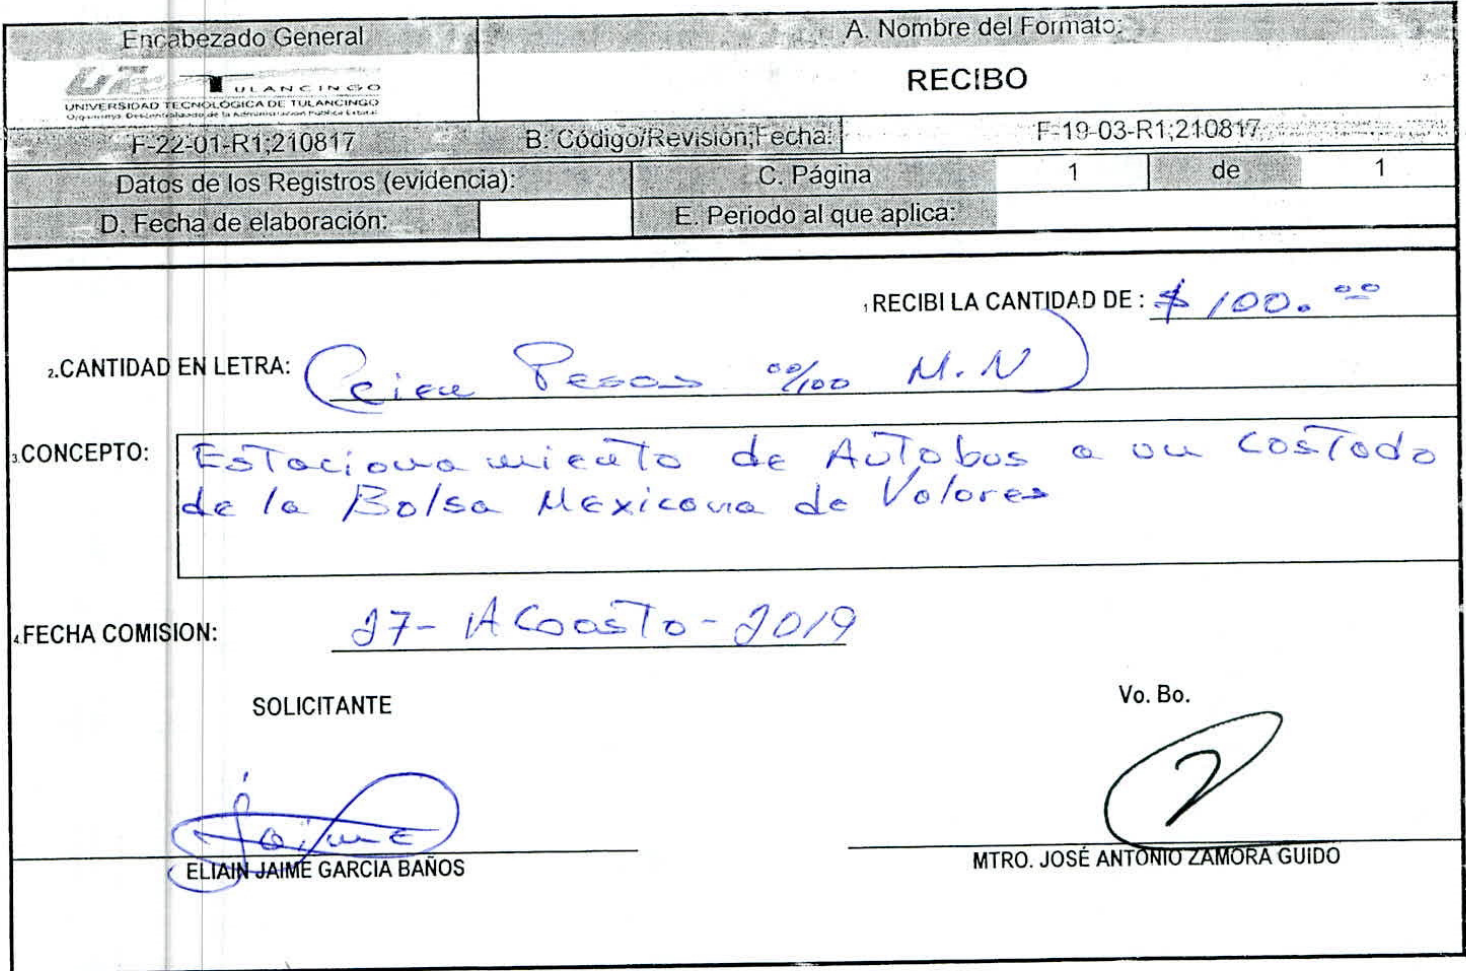 Encabezado General
A. Nombre del Formato:
TULANCINGO
UNIVERSIDAD TECNOLÓGICA DE TULANCINGO
Organismo Descentralizado de la Administración Pública Estatal
RECIBO
F-22-01-R1;210817 B. Código/Revisión;Fecha: F-19-03-R1;210817
Datos de los Registros (evidencia): C. Página 1 de 1
D. Fecha de elaboración: E. Periodo al que aplica:
1 RECIBI LA CANTIDAD DE : $ 100.00
2.CANTIDAD EN LETRA: (cien Pesos 00/100 M.N)
3.CONCEPTO: Estacionamiento de Autobus a un Costado
de la Bolsa Mexicana de Valores
4.FECHA COMISION: 27- AGosto-2019
SOLICITANTE Vo. Bo.
Jaime
ELIAIN JAIME GARCIA BAÑOS MTRO. JOSÉ ANTONIO ZAMORA GUIDO